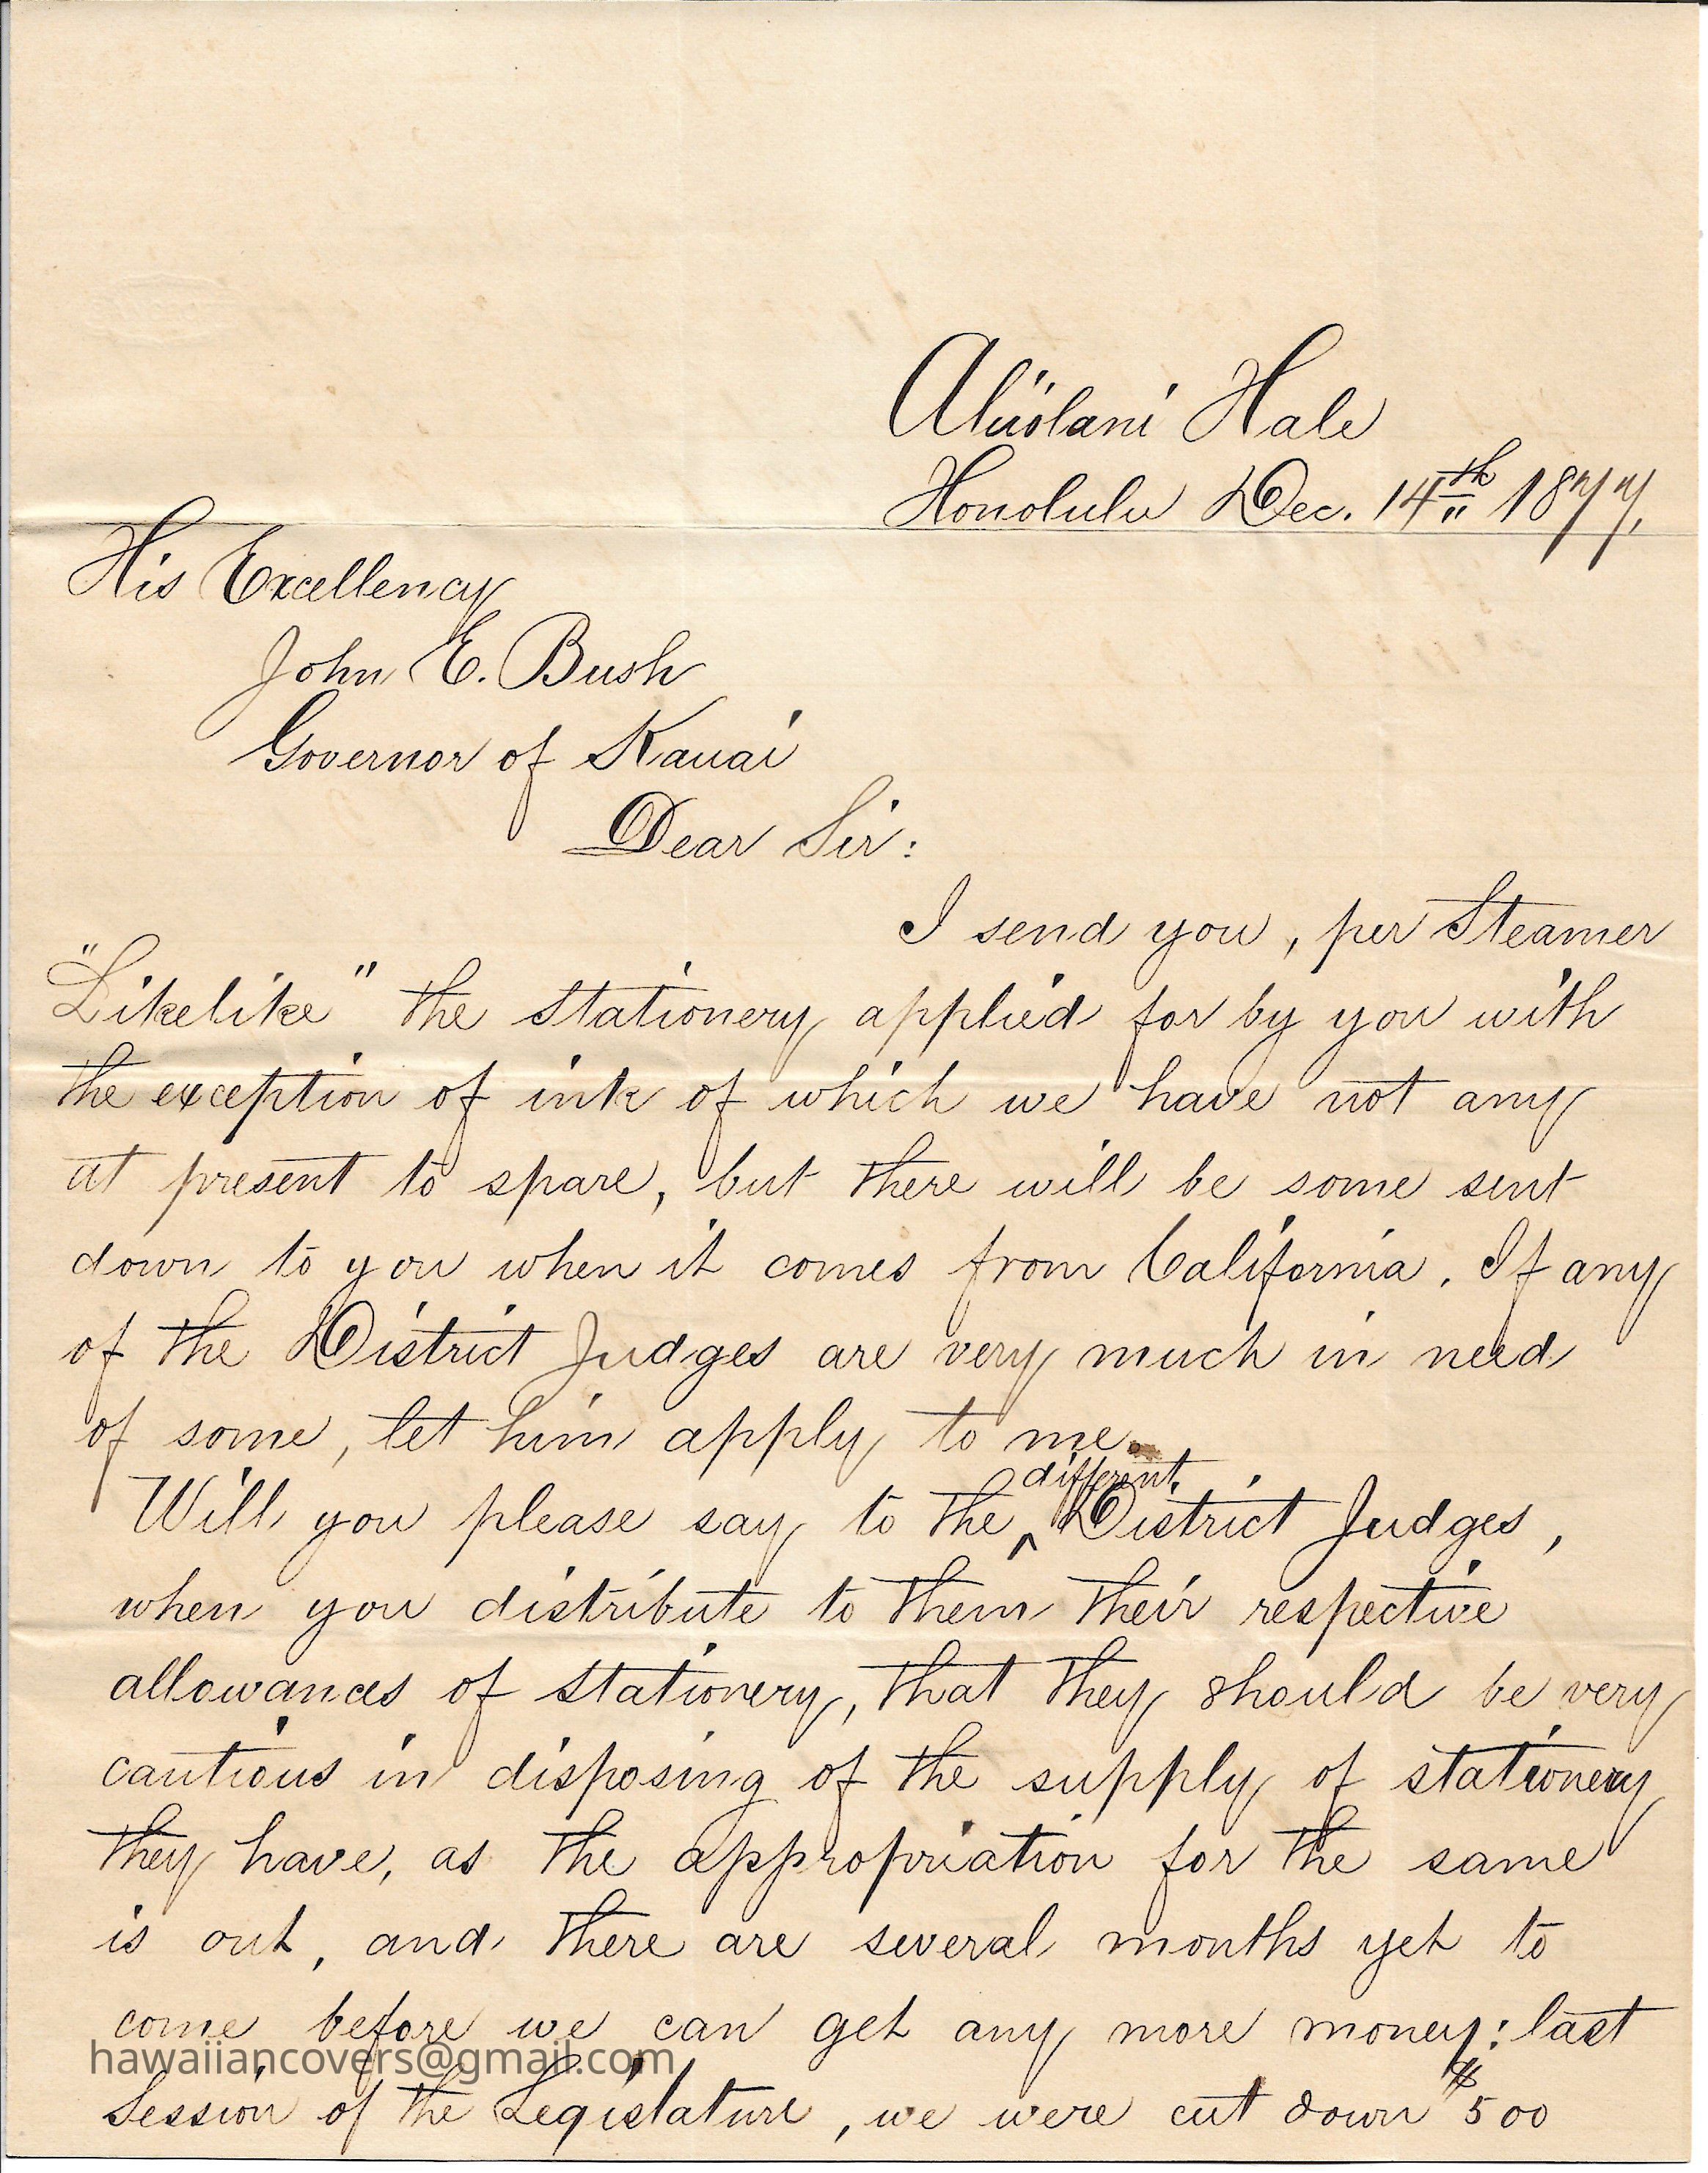 Aliiolani Hale
Honolulu Dec. 14th 1877,
His Excellency
John E. Bush
Governor of Kauai
Dear Sir:
I send you, per Steamer
"Likelike" the stationery applied for by you with
the exception of ink of which we have not any
at present to spare, but there will be some sent
down to you when it comes from California. If any
of the District Judges are very much in need
of some, let him apply to me.
different
Will you please say to the ^ District Judges,
when you distribute to them their respective
allowances of stationery, that they should be very
cautious in disposing of the supply of stationery
they have, as the appropriation for the same
is out, and there are several months yet to
come before we can get any more money: last
hawaiiancovers@gmail.com
Session of the Legislature, we were cut down $500